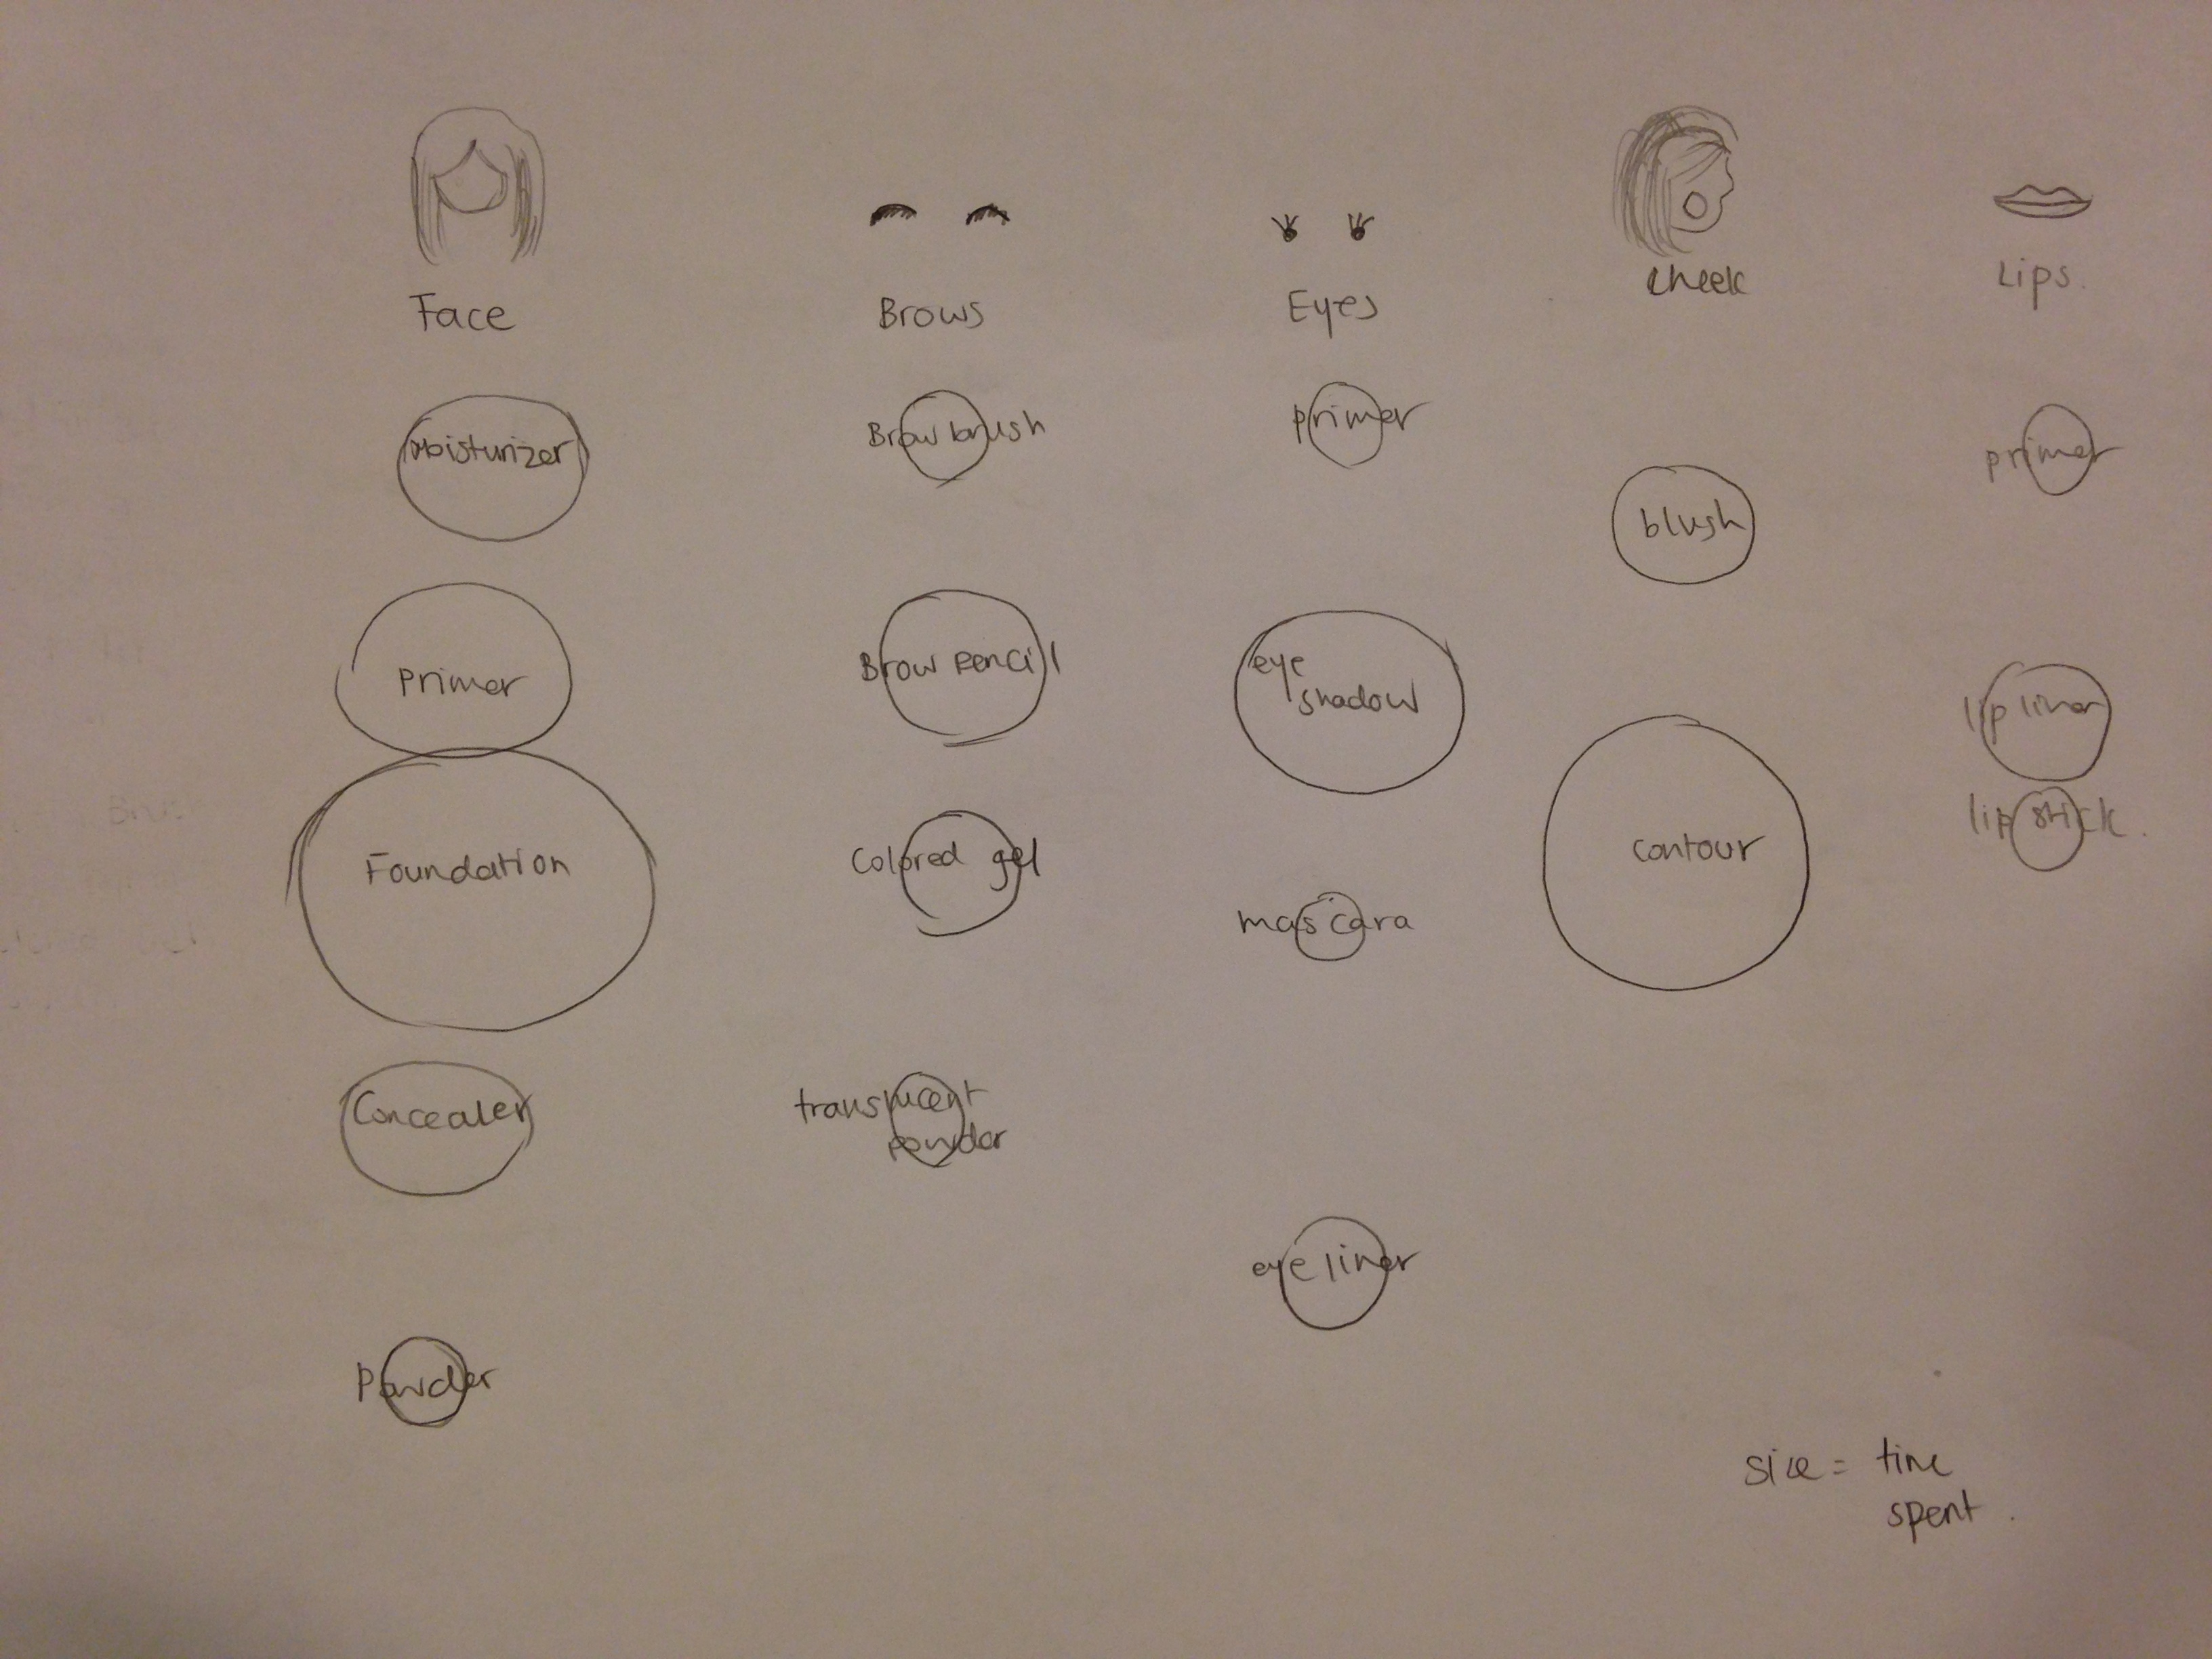 Face
Brows
Eyes
cheek
Lips.
Moisturizer
Primer
Foundation
Concealer
Powder
Brow brush
Brow Pencil
Colored gel
translucent
powder
primer
eye
shadow
mascara
eye liner
blush
contour
primer
lip liner
lip stick.
size = time
spent.